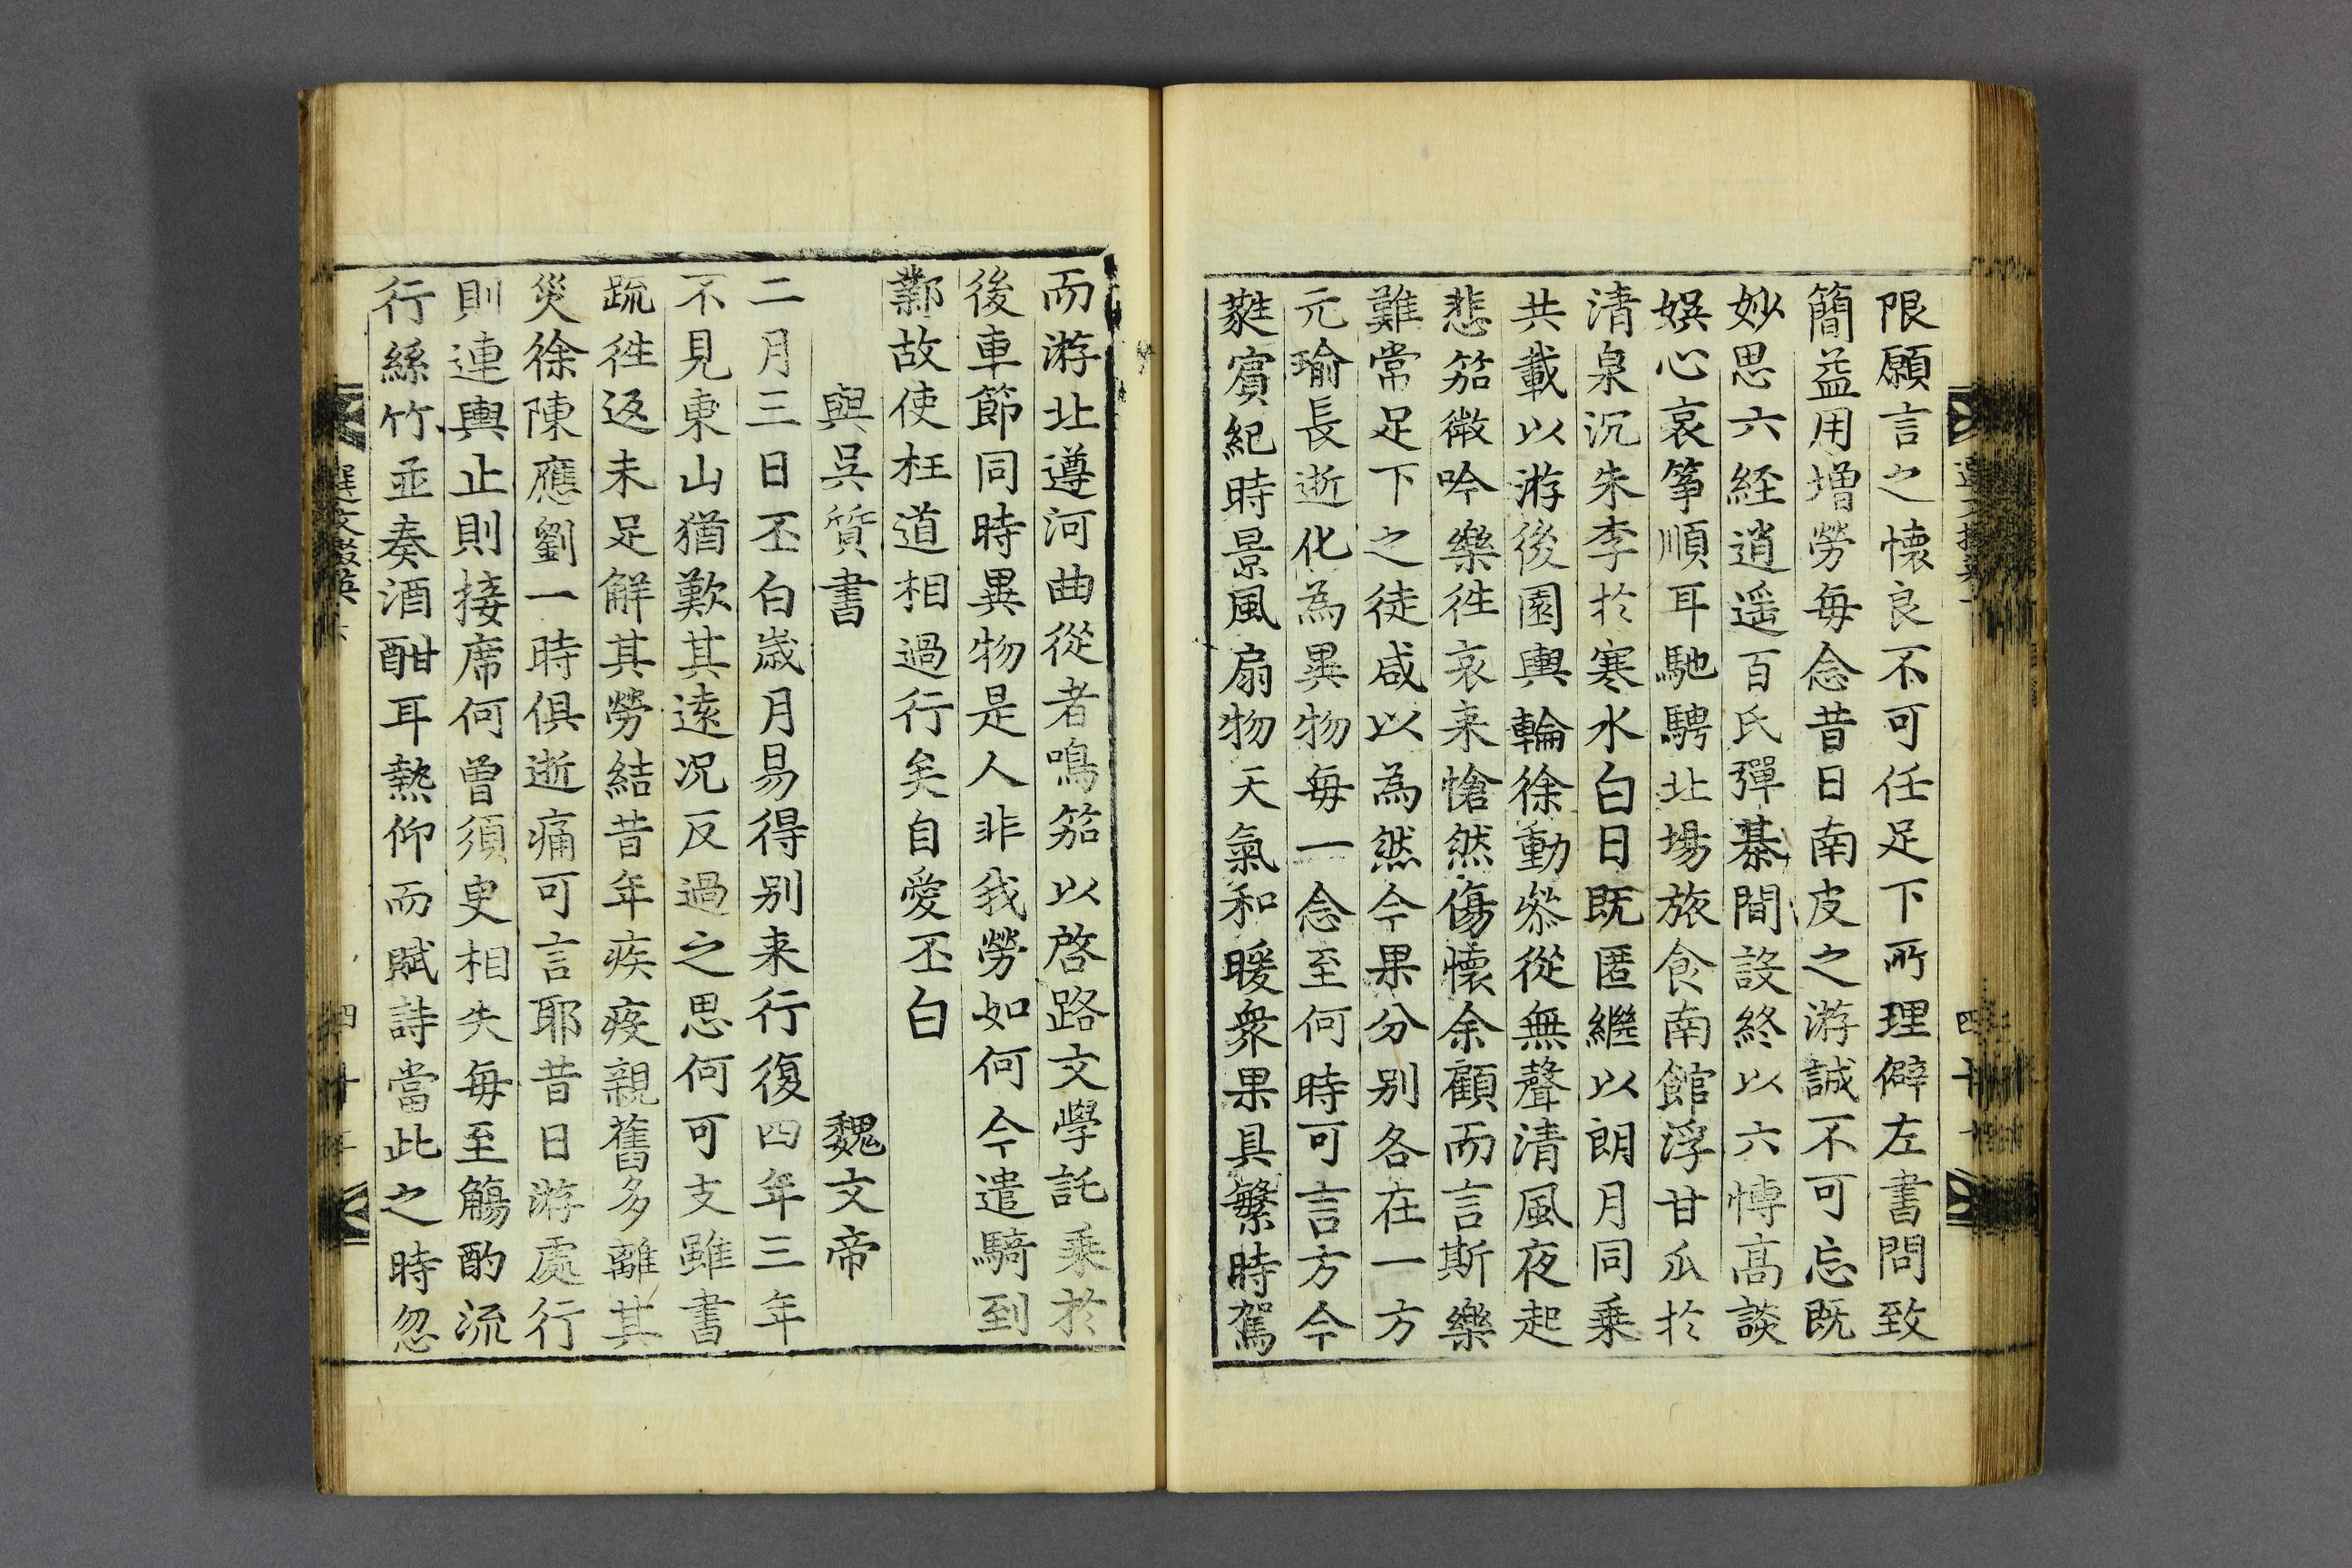 限願言之懷良不可任足下所理僻左書問致
簡益用增勞每念昔日南皮之游誠不可忘既
妙思六經逍遥百氏彈棊閒設終以六愽高談
娱心哀筝順耳馳騁北塲旅食南館浮甘瓜於
清泉沉朱李於寒水白日既匿繼以朗月同乗
共載以游後園輿輪徐動叅從無聲清風夜起
悲笳微吟樂徃哀来愴然傷懷余顧而言斯樂
難常足下之徒咸以為然今果分别各在一方
元瑜長逝化為異物每一念至何時可言方今
蕤賓紀時景風扇物天氣和暖衆果具繁時駕
而游北遵河曲從者鳴笳以啓路文學託乗於
後車節同時異物是人非我勞如何今遣騎到
鄴故使枉道相過行矣自愛丕白
與吴質書 魏文帝
二月三日丕白歳月易得别来行復四年三年
不見東山猶歎其逺况反過之思何可支雖書
䟽徃返未足解其勞結昔年疾疫親舊多離其
災徐陳應劉一時俱逝痛可言耶昔日游處行
則連輿止則接席何曽須臾相失每至觴酌流
行絲竹並奏酒酣耳熱仰而賦詩當此之時忽